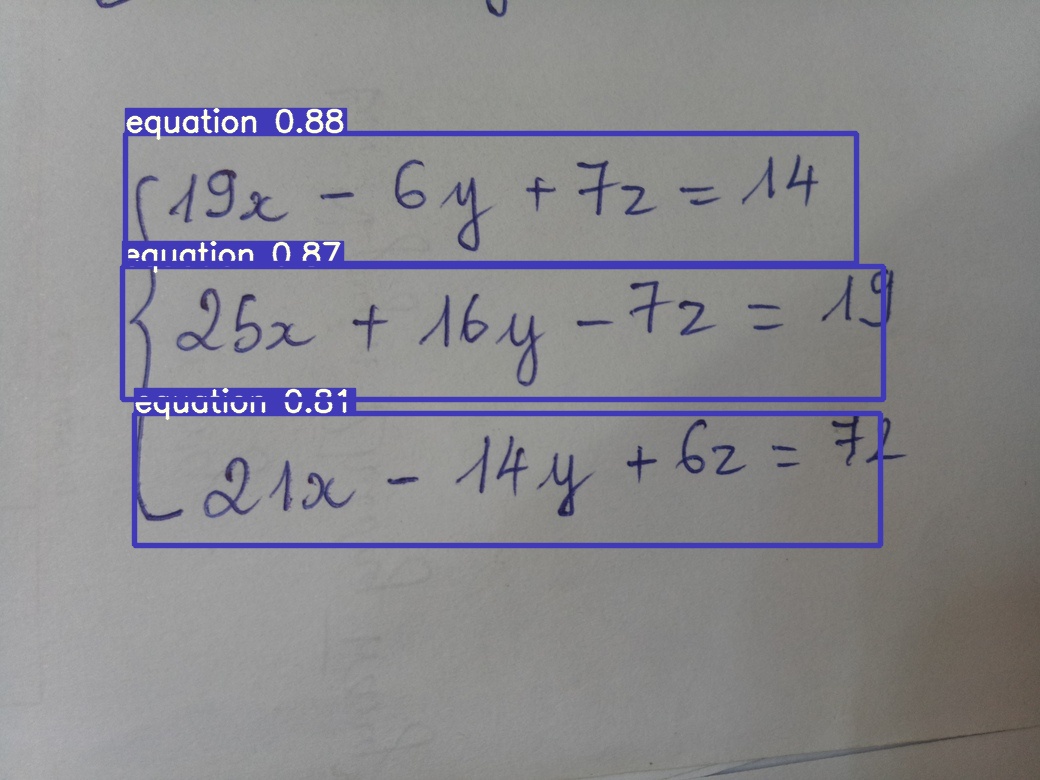 equation 0.88
19x - 6y + 7z = 14
equation 0.87
25x + 16y - 7z = 19
equation 0.81
21x - 14y + 6z = 72